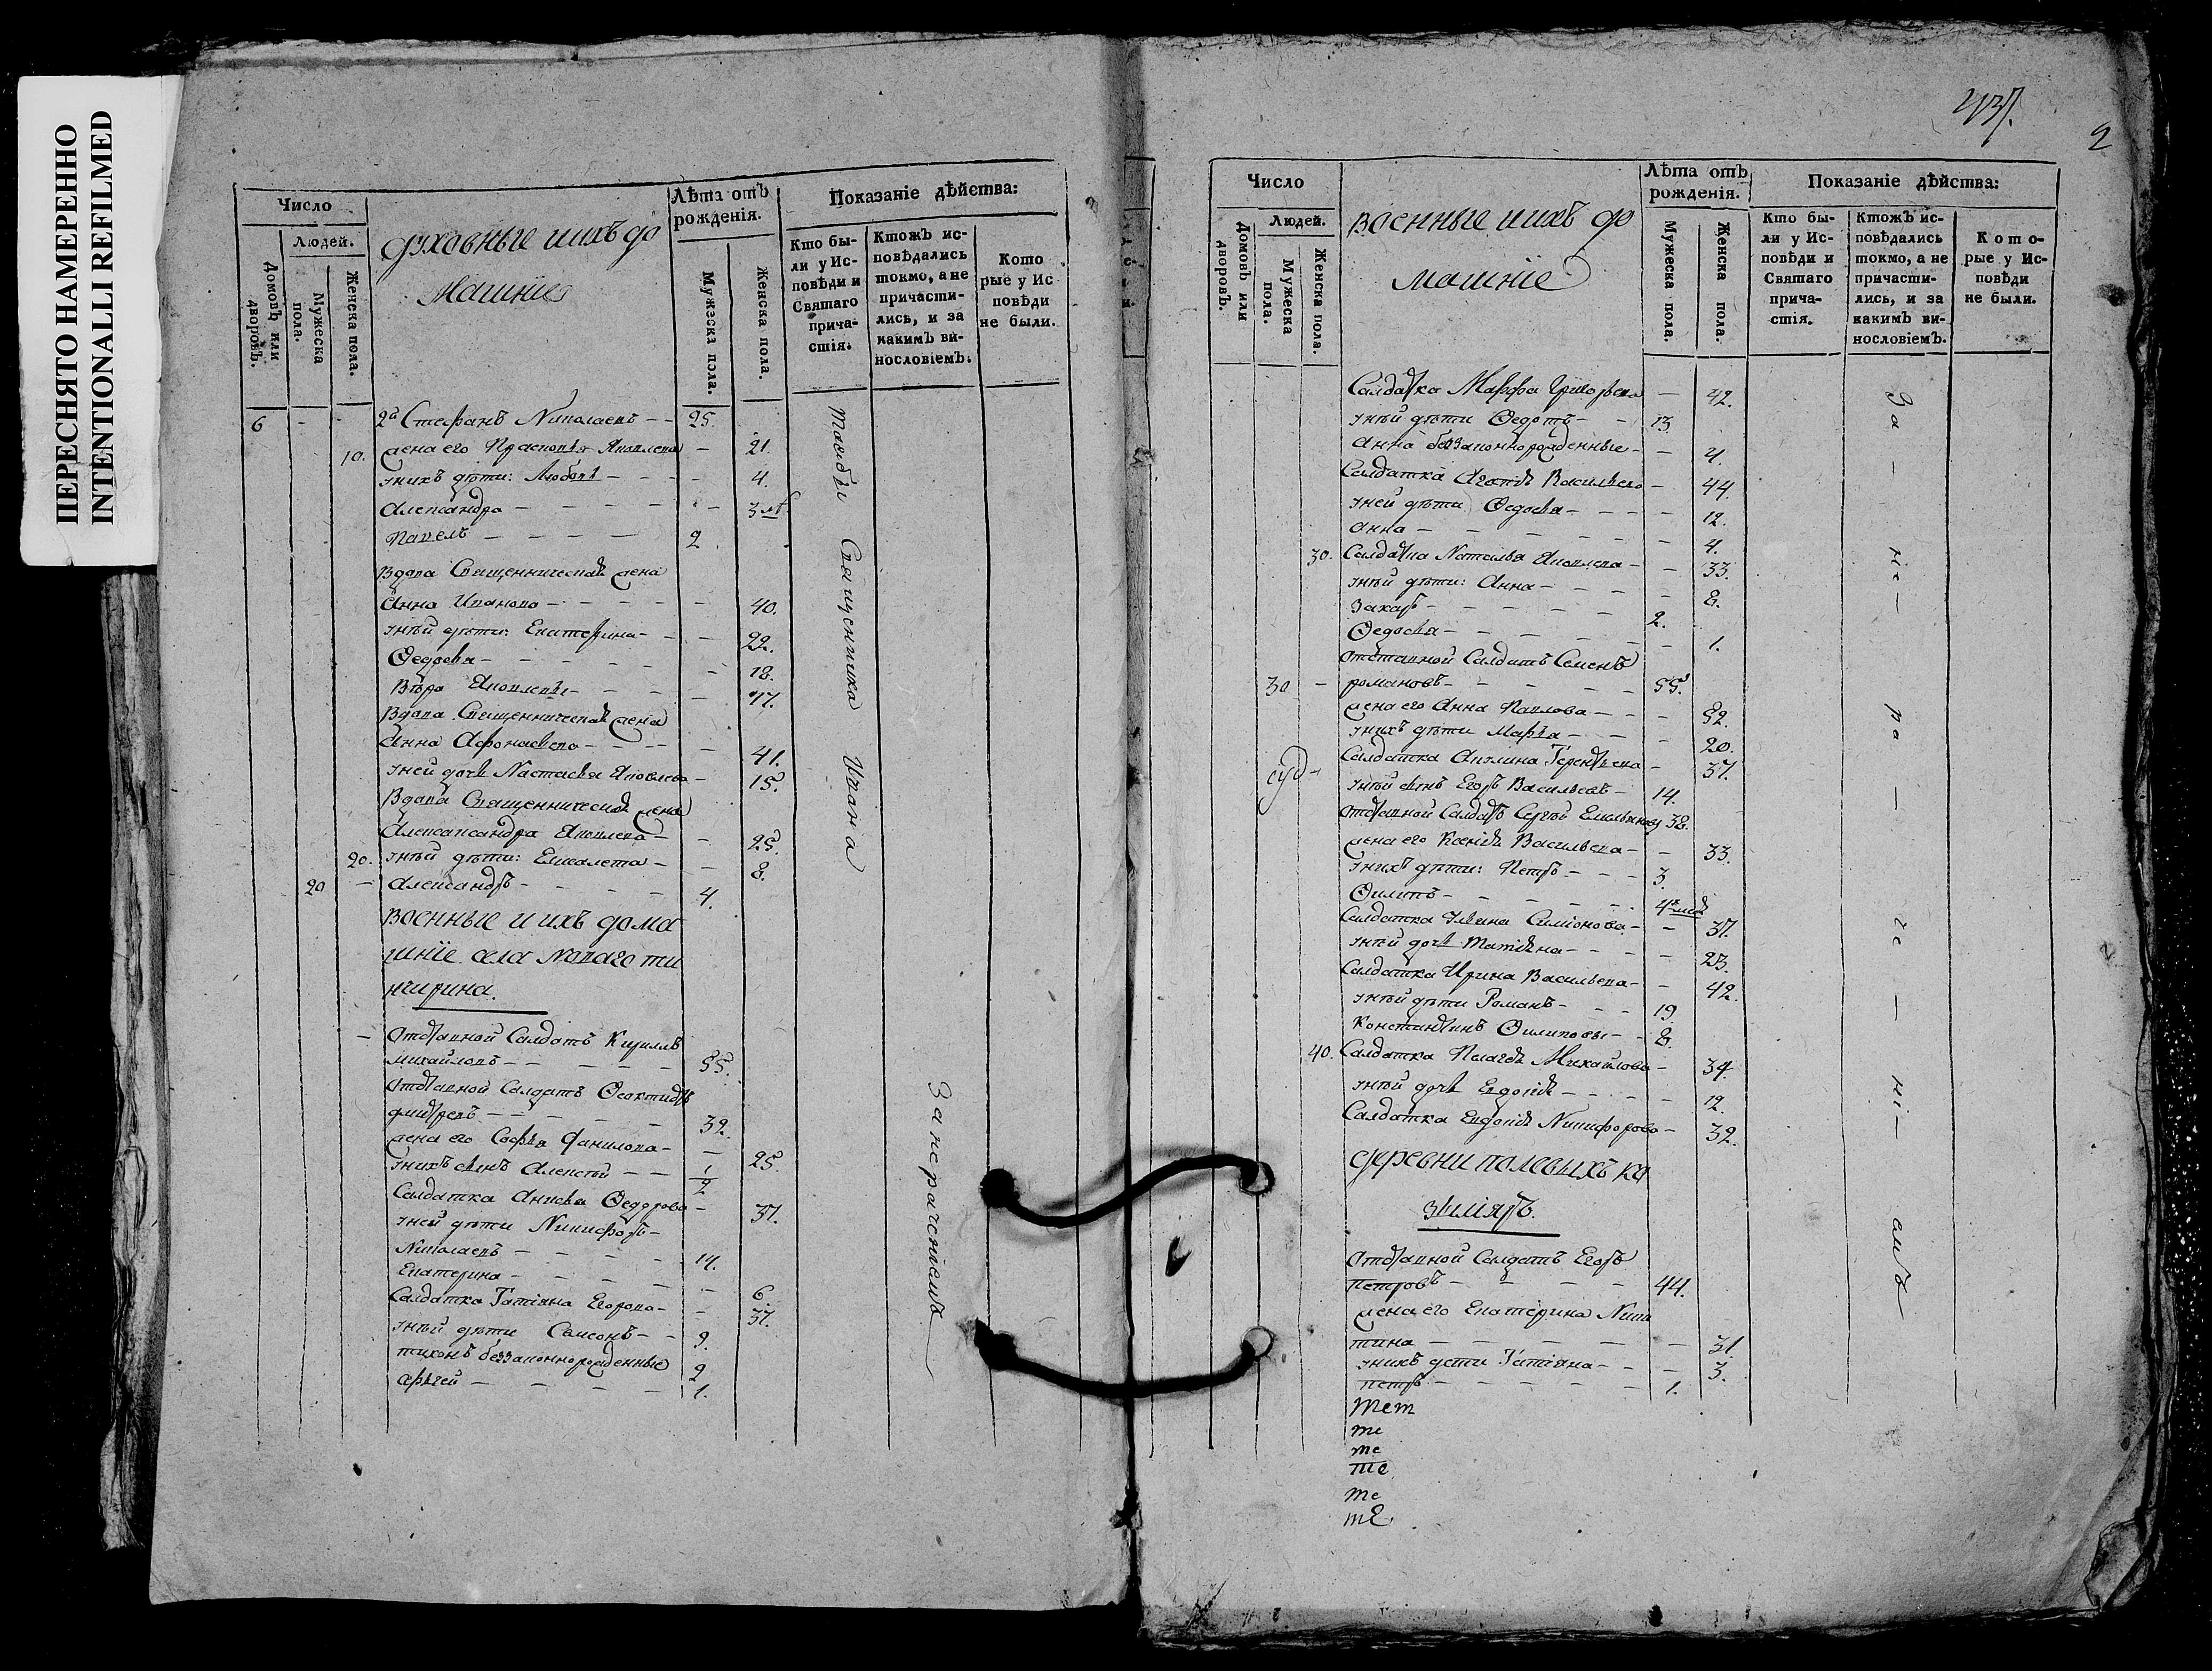 ПЕРЕСНЯТО НАМЕРЕННО
INTENTIONALLI REFILMED
Число
Людей.
Домовъ или дворовъ.
Мужеска пола.
Женска пола.
духовные иихъ до
машніе
Лѣта отъ
рожденія.
Мужеска пола.
Женска пола.
Показаніе дѣйства:
Кто бы-
ли у Ис-
повѣди и
Святаго
прича-
стія.
Ктожъ ис-
повѣдались
токмо, а не
причасти-
лись, и за
какимъ ви-
нословіемъ.
Кото
рые у Ис
повѣди
не были.
6 - - 2й Стефанъ Николаевъ - - 25.
10. жена его Прасковья Яковлева - 21.
унихъ дѣти: Любовь - - - - 4.
Александра - - - - - 3
Павелъ - - - - 2
Вдова Священническая жена
Анна Иванова - - - - - 40.
унѣй дѣти: Екатерина - - - 22.
Ѳедосья - - - - - 18.
Вѣра Яковлевы - - - - 17.
Вдова Священническая жена
Анна Афонасьева - - - - 41.
уней дочь Настасья Яковлева - 15.
Вдова Священническая жена
Александра Яковлева - - 25.
20. унѣй дѣти: - - 8.
20 - Александръ - - - - 4.
военные и ихъ дома
шніе села новаго ти
нчирина.
- Отставной Салдатъ Кириллъ
Михайловъ - - - - - 55.
Отставной Салдатъ Ѳеоктистъ
- - - - - 32.
жена его Софья Данилова - - 25.
унихъ сынъ Алексѣй - - 1/2
Салдатка Анисья Ѳедорова - 37.
уней дѣти Никифоръ -
Николаевъ - - - - 14.
Екатерина - - - - - 6.
Салдатка Татіяна Егорова - - 37.
унѣй дѣти Самсонъ - - 9.
тихонъ беззаконнорожденные 2
- - - - - 1.
Таюбы Священника Ивана
Занераченіемъ
437.
2
Число
Людей.
Домовъ или дворовъ.
Мужеска пола.
Женска пола.
военные иихъ до
машніе
Лѣта отъ
рожденія.
Мужеска пола.
Женска пола.
Показаніе дѣйства:
Кто бы-
ли у Ис-
повѣди и
Святаго
прича-
стія.
Ктожъ ис-
повѣдались
токмо, а не
причасти-
лись, и за
какимъ ви-
нословіемъ.
Кото-
рые у Ис-
повѣди
не были.
Салдатка Марфа Григорьева - 42.
унѣй дѣти Ѳедотъ - - 13
Анна беззаконнорожденные - - 4.
Салдатка Агафія Васильева - 44.
уней дѣти Ѳедосья - - - - 12.
Анна - - - - - 4.
30. Салдатка Наталья Яковлева - - 33.
унѣй дѣти: Анна - - - - 8.
Захаръ - - - - - 2.
Ѳедосья - - - - - 1.
Отставной Салдатъ Семенъ
30 - романовъ - - - - - 55.
жена его Анна Павлова - - - 52.
унихъ дѣти Марья - - - 20.
Салдатка Акулина Терентьева - 37.
унѣй сынъ Егоръ Васильевъ - 14.
Отставной Салдатъ Сергѣй Емельяновъ 38.
жена его Ксенія Васильева - - 33.
унихъ дѣти: Петръ - - - 3.
Филипъ - - - - - 4
Салдатка Ульяна Симіонова - - 37.
унѣй дочь Матрена - - - - 23.
Салдатка Ирина Васильева - - 42.
унѣй дѣти Романъ - - - 19
Константинъ Филиповы - - 8.
40. Салдатка Пелагея Михайлова - 34.
унѣй дочь Евдокія - - - - 12.
Салдатка Евдокія Никифорова - 32.
деревни полевыхъ ко
зыляръ.
Отставной Салдатъ Егоръ
петровъ - - - - 44.
жена его Екатерина Ники
тина - - - - - 31
унихъ дети Татіяна - - - 3.
петръ - - - - - 1.
тет
те
те
те
те
те
За - не - ра - че - ні - емъ